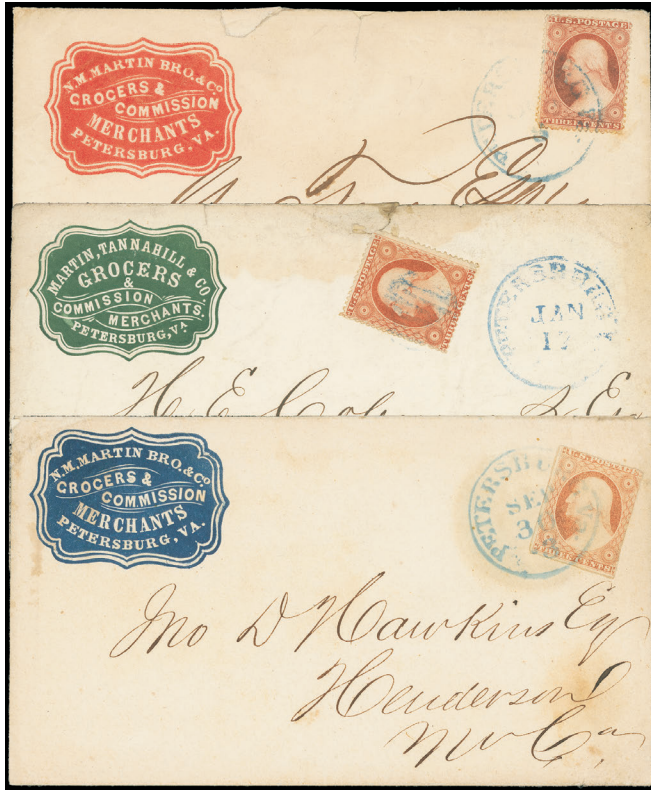 N.M. MARTIN BRO. & Co.
GROCERS &
COMMISSION
MERCHANTS
PETERSBURG, VA.
U.S. POSTAGE
THREE CENTS
MARTIN, TANNAHILL & CO.
GROCERS
&
COMMISSION
MERCHANTS.
PETERSBURG, VA
U.S. POSTAGE
PETERSBURG
JAN
17
H. E. Col
N.M. MARTIN BRO. & Co.
GROCERS &
COMMISSION
MERCHANTS
PETERSBURG, VA.
PETERSBU
SE
3
U.S. POSTAGE
THREE CENTS
Jno D Hawkins Esq
Henderson